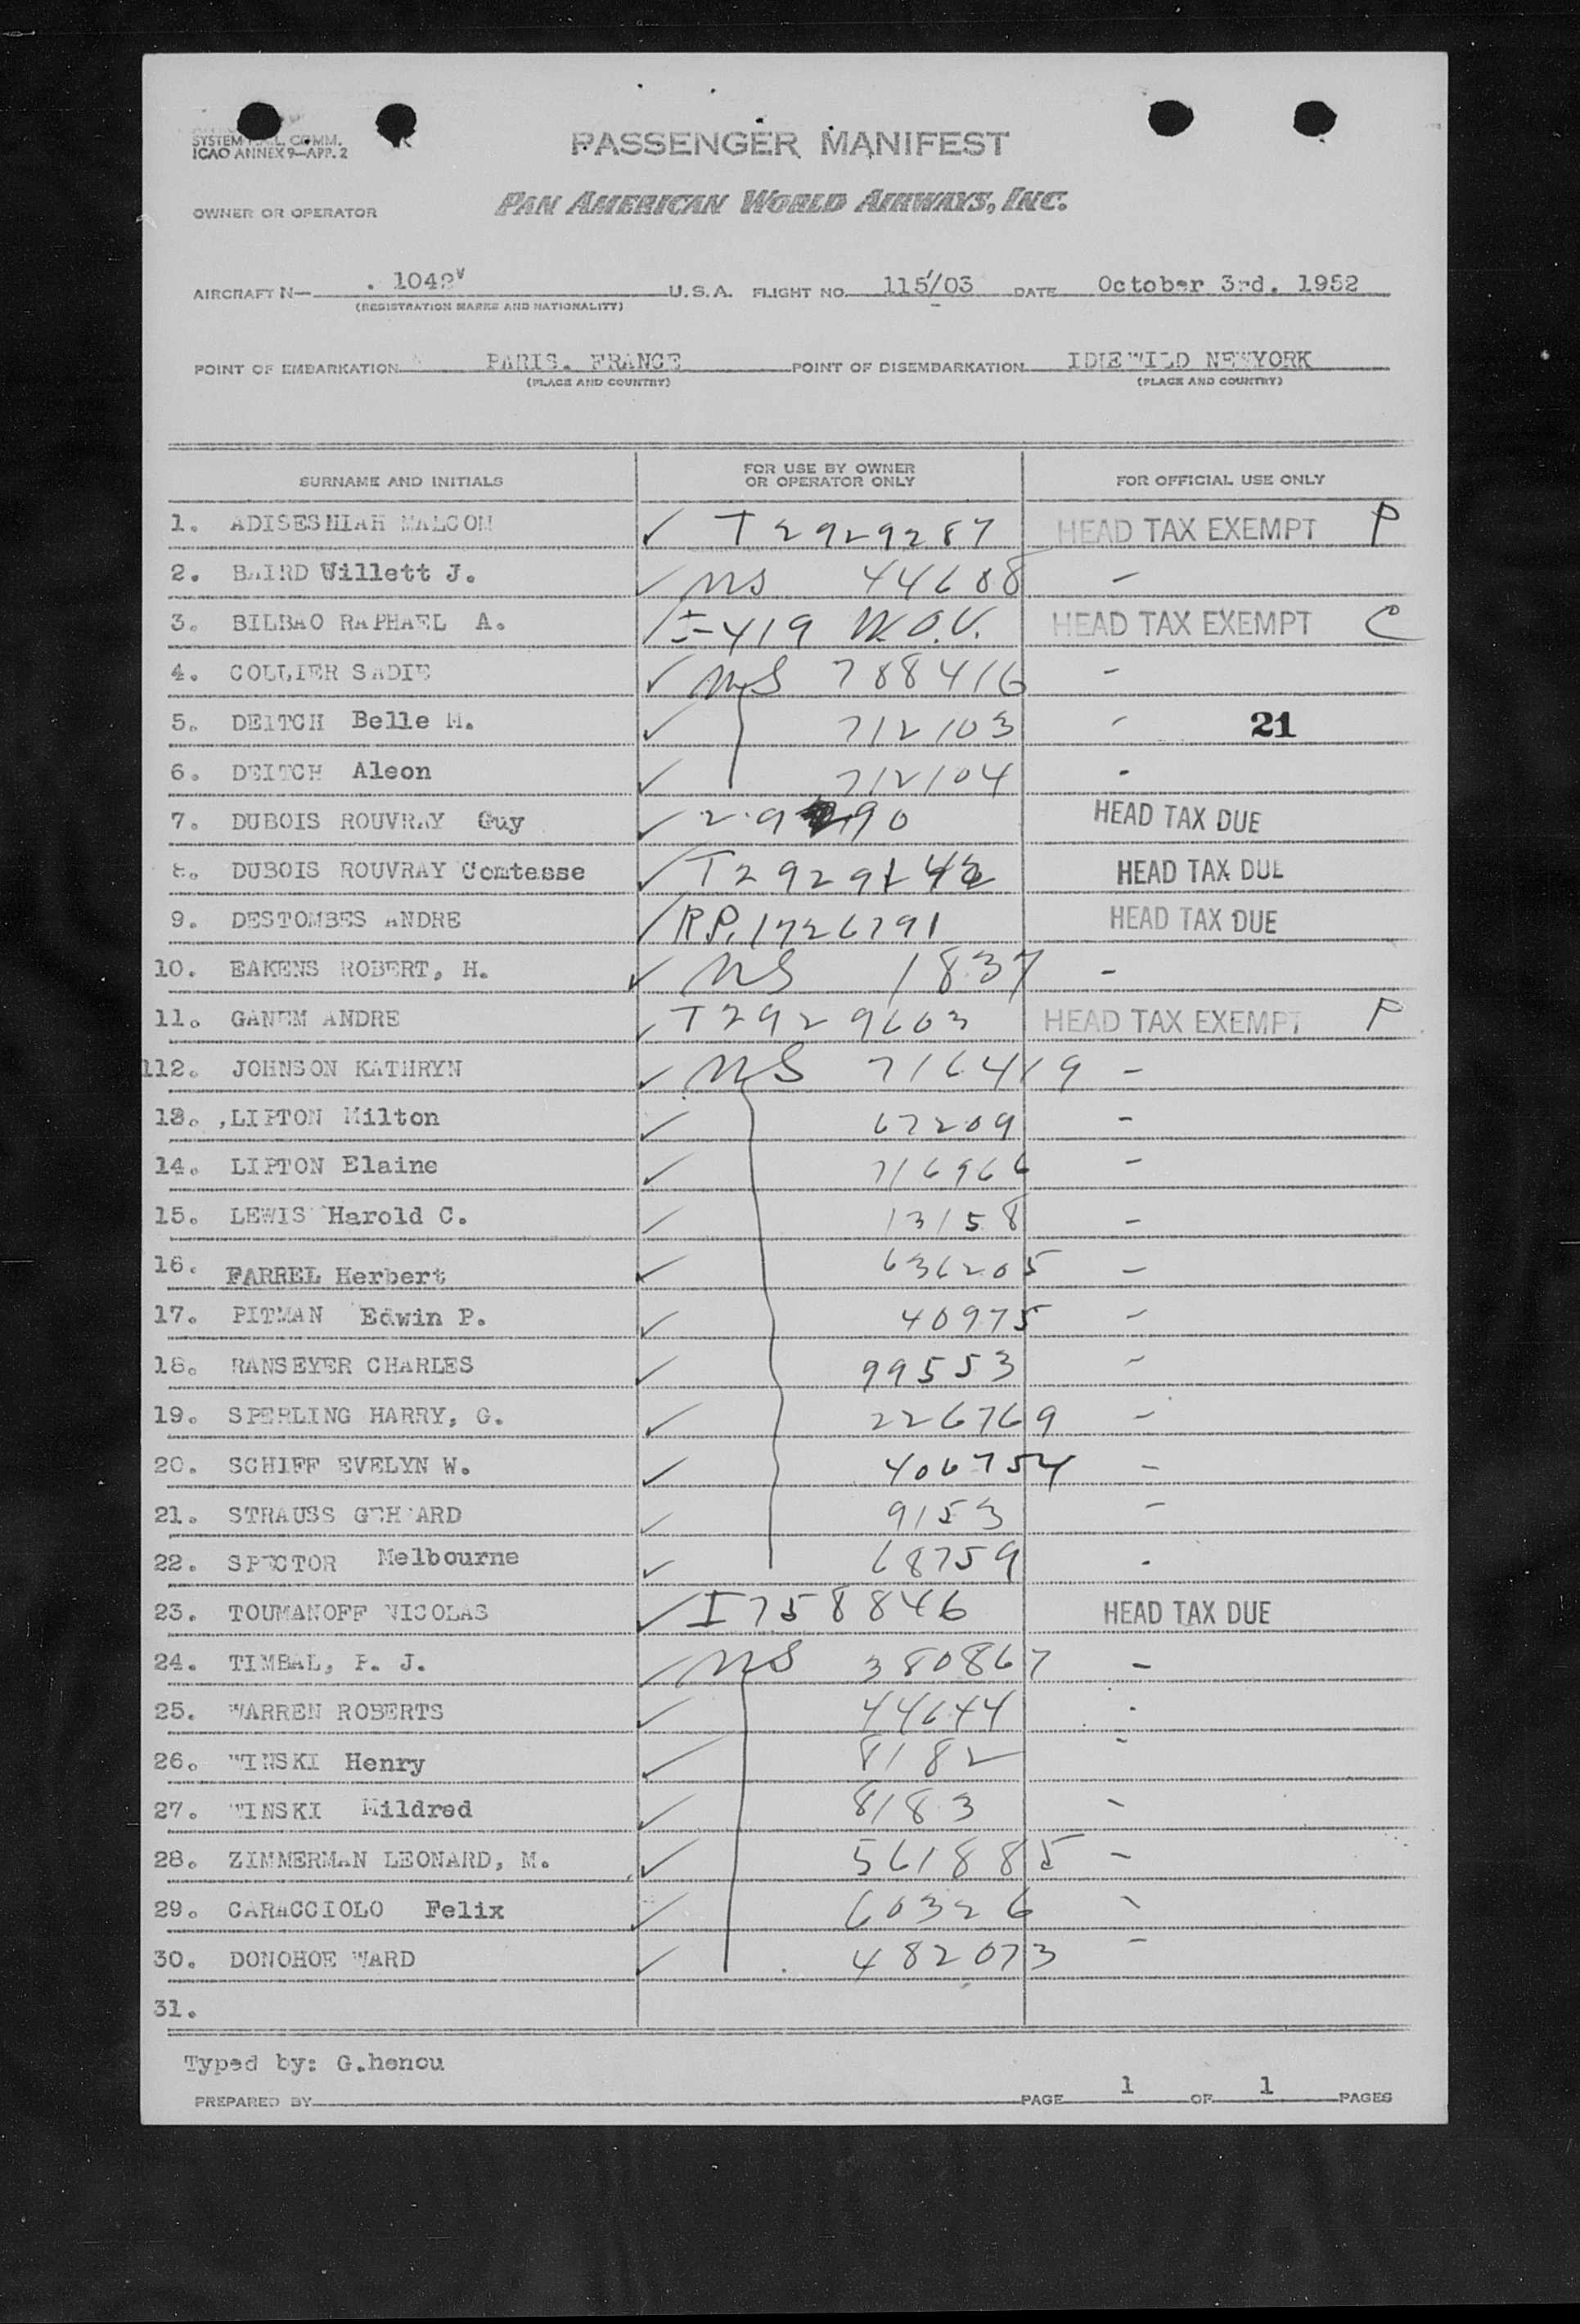 SYSTEM COMM. R
ICAO ANNEX 9—APP. 2
PASSENGER MANIFEST
OWNER OR OPERATOR PAN AMERICAN WORLD AIRWAYS, INC.
AIRCRAFT N— . 1042V U.S.A. FLIGHT NO. 115/03 DATE October 3rd. 1952
(REGISTRATION MARKS AND NATIONALITY)
POINT OF EMBARKATION PARIS. FRANCE POINT OF DISEMBARKATION IDLEWILD NEWYORK
(PLACE AND COUNTRY) (PLACE AND COUNTRY)
SURNAME AND INITIALS FOR USE BY OWNER OR OPERATOR ONLY FOR OFFICIAL USE ONLY
1. ADISESHIAH MALCOM ✓ T 2929287 HEAD TAX EXEMPT P
2. BAIRD Willett J. ✓ NS 44608 –
3. BILBAO RAPHAEL A. I-419 W.O.V. HEAD TAX EXEMPT C
4. COLLIER SADIE ✓ NS 788416 –
5. DEITCH Belle M. ✓ 712103 – 21
6. DEITCH Aleon ✓ 712104 -
7. DUBOIS ROUVRAY Guy ✓ HEAD TAX DUE
8. DUBOIS ROUVRAY Comtesse ✓ HEAD TAX DUE
9. DESTOMBES ANDRE ✓ R.P. 1726791 HEAD TAX DUE
10. EAKENS ROBERT, H. ✓ NS 1837 –
11. GANEM ANDRE ✓ T2929603 HEAD TAX EXEMPT P
112. JOHNSON KATHRYN ✓ NS 716419 –
13. ,LIPTON Milton ✓ 67209 –
14. LIPTON Elaine ✓ 716966 –
15. LEWIS Harold C. ✓ 13158 –
16. FARREL Herbert ✓ 636205 –
17. PITMAN Edwin P. ✓ 40975 –
18. RANSEYER CHARLES ✓ 99553 –
19. SPERLING HARRY, G. ✓ 226769 –
20. SCHIFF EVELYN W. ✓ 406754 –
21. STRAUSS GEHRARD ✓ 9153 –
22. SPECTOR Melbourne ✓ 68759 -
23. TOUMANOFF NICOLAS ✓ I758846 HEAD TAX DUE
24. TIMBAL, P. J. ✓ NS 380867 –
25. WARREN ROBERTS ✓ 44644 -
26. WINSKI Henry ✓ 8182 -
27. WINSKI Mildred ✓ 8183 –
28. ZIMMERMAN LEONARD, M. ✓ 561885 –
29. CARACCIOLO Felix ✓ 60326 –
30. DONOHOE WARD ✓ 482073 –
31.
Typed by: G.henou
PREPARED BY PAGE 1 OF 1 PAGES